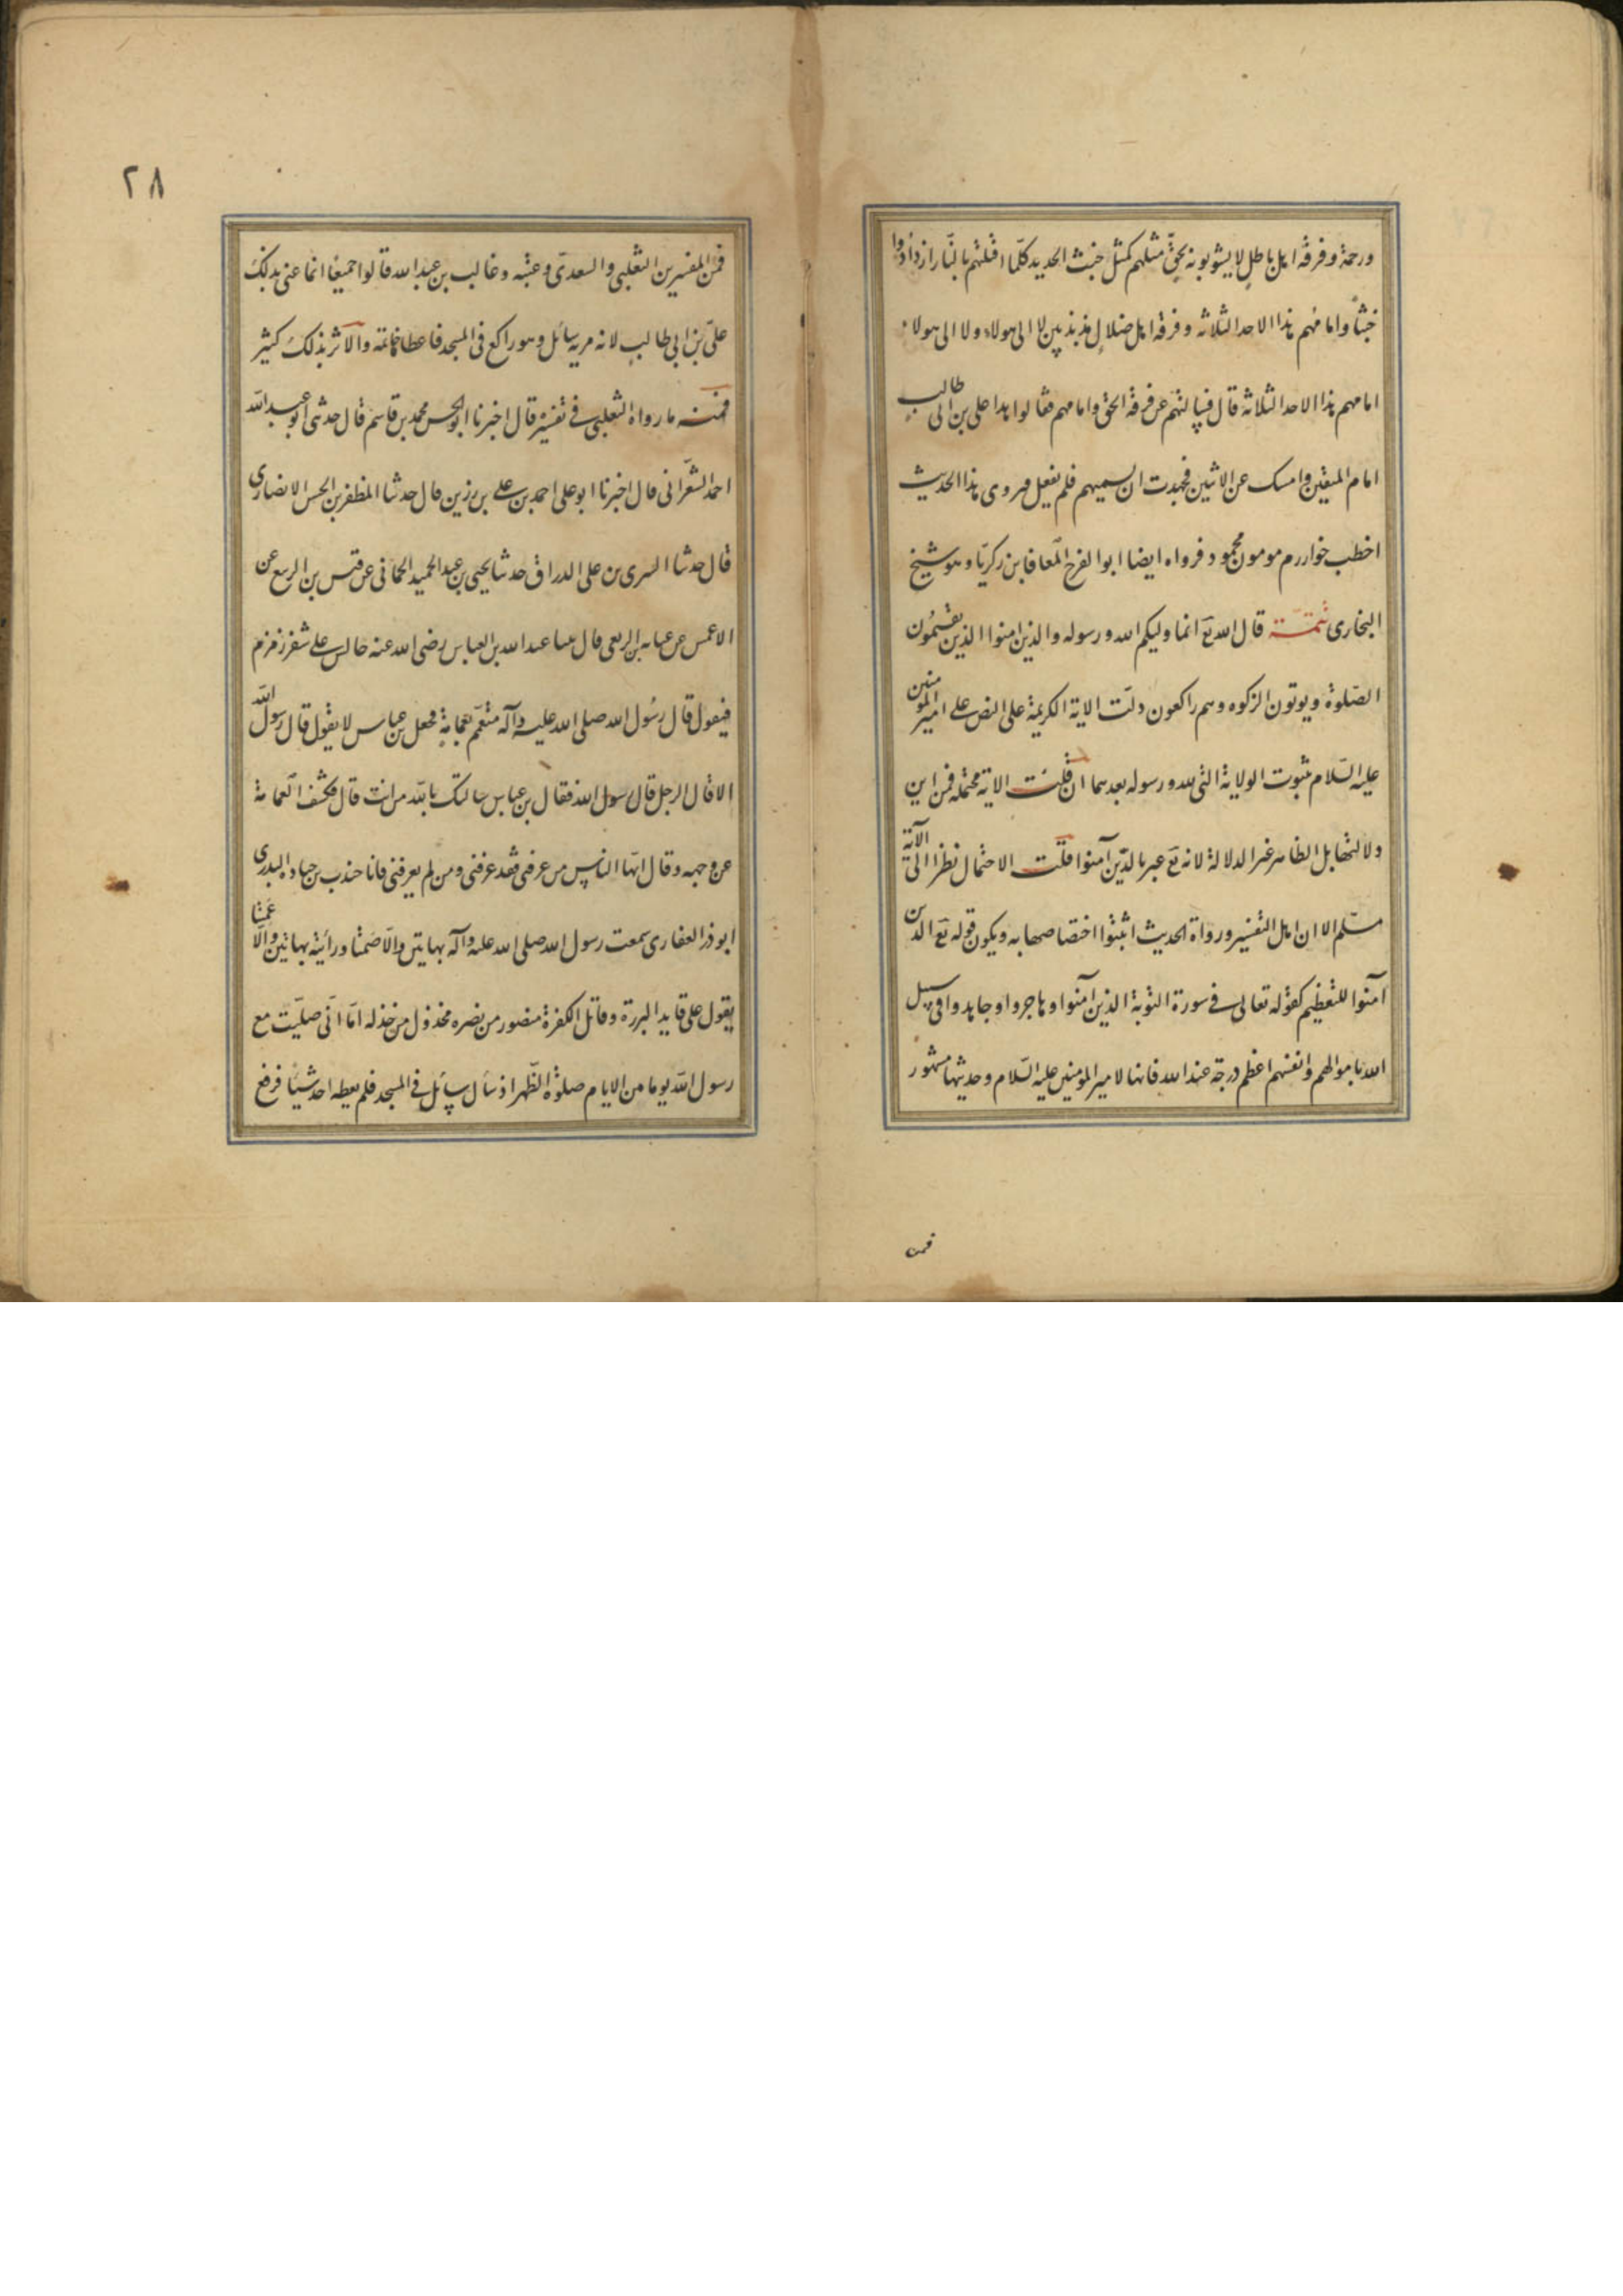 ورحمة وفرقة اهل باطل لا يشوبونه بحقّ مثلهم كمثل خبث الحديد كلّما افتنتهم بالنّار ازدادوا
خبثا وامامهم هذا الاحد الثلاثه وفرقة اهل ضلال مذبذبين لا الى هولاء ولا الى هولاء
امامهم هذا الاحد الثلاثة قال فسالتهم عن فرقة الحق وامامهم فقالوا هذا على بن ابى طالب
امام المتقين وامسك عن الاثنين فجهدت ان يسميهم فلم يفعل وروى هذا الحديث
اخطب خوارزم موموَن محمود فرواه ايضا ابوا الفرج المعافا بن زكريّا وهو شيخ
البخارى تتمّة قال الله تع انما وليكم الله ورسوله والذين امنوا الذين يقيمُون
الصّلوة ويوتون الزكوه وهم راكعون دلّت الاية الكريمة على النص على امير المومنين
عليه السّلام بثبوت الولاية التى لله ورسوله بعدهما ان قلت الاية محتمله فمن اين
ولالتها بل الظاهر غير الدلالة لانه تع عبر بالذّين آمنوا قلت الاحتمال نظرا الى الآية
مسّلم الا ان اهل التفسير ورواة الحديث اثبتوا اختصاصها به ويكون قوله تع الذين
آمنوا للتعظيم كقوله تعالى فى سورة التوبة الذين آمنوا وهاجروا وجاهدوا فى سبيل
الله باموالهم وانفسهم اعظم درجة عند الله فانها لامير المومنين عليه السّلام وحديثها مشهور
فمن
٢٨
فمن المفسرين الثعلبى والسعدىّ وعتبه وغالب بن عبد الله قالوا جميعًا انما عنى بذلك
علىّ بن ابى طالب لانه مر به سائل وهو راكع فى المسجد فاعطا خاتمه والآثر بذلك كثير
فمنه ما رواه الثعلبى فى تفسيره قال اخبرنا ابو الحسن محمد بن قاسم قال حدثنى ابو عبد الله
احمد الشعّرانى قال اخبرنا ابو على احمد بن على بن رزين قال حدثنا المظفر بن الحسن الانصارى
قال حدثنا السرى بن على الوراق حدثنا يحيى بن عبد الحميد الحمّانى عن قيس بن الربيع عن
الاعمش عن عبايه بن الربعى قال بينا عبد الله بن العباس رضى الله عنه جالس على شفر زمزم
فيقول قال رسُول الله صلى الله عليه وآله متعمّم بعمامةٍ فجعل بن عباس لا يقول قال رسول الله
الا قال الرجل قال رسول الله فقال بن عباس سالتك بالله من انت قال فكشف العمامة
عن وجهه وقال ايّها الناس من عرفنى فقد عرفنى ومن لم يعرفنى فانا جندب بن جناده البدرى
ابو ذر الغفارى سمعت رسول الله صلى الله عليه وآله بهاتين والّا صمتا ورأيته بهاتين والّا عميتا
يقول على قايد البررة وقاتل الكفرة منصور من نصره مخذول من خذله امّا انّى صليّت مع
رسول الله يوما من الايام صلوة الظهر اذ سأل سائل فى المسجد فلم يعطه احد شيئا فرفع